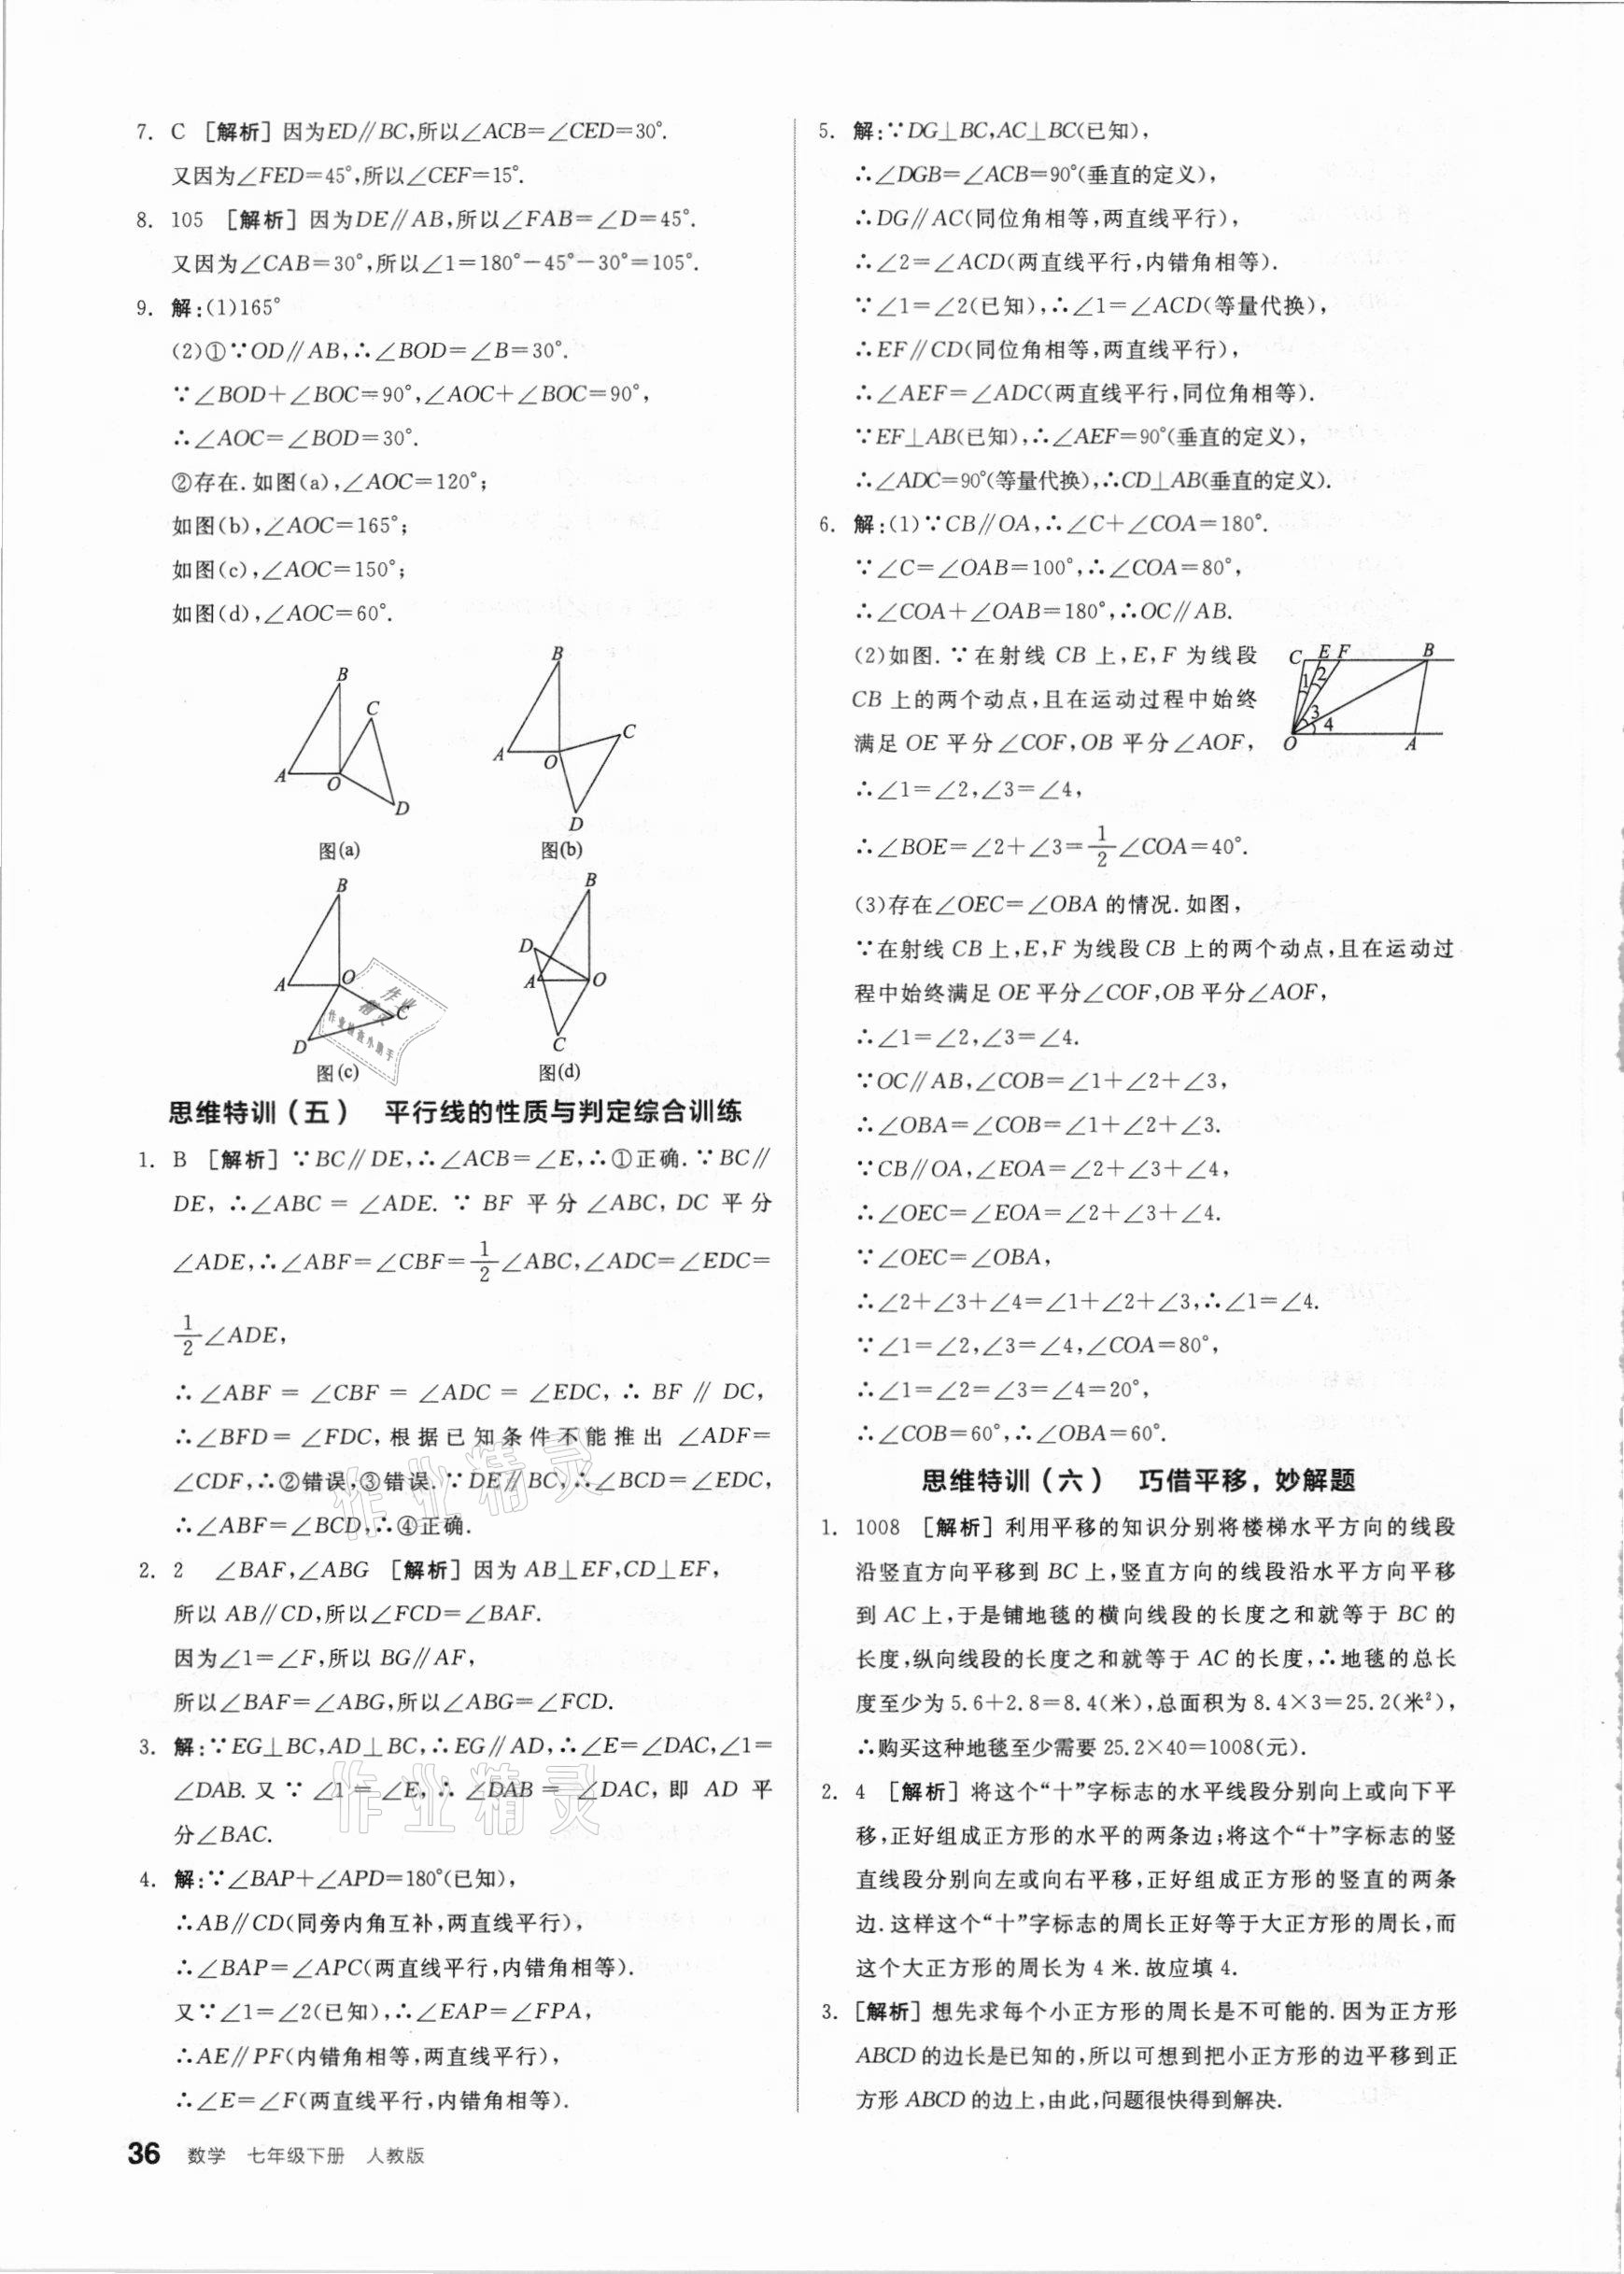 7. C [解析]因为ED∥BC,所以∠ACB=∠CED=30°.
又因为∠FED=45°,所以∠CEF=15°.
8. 105 [解析]因为DE∥AB,所以∠FAB=∠D=45°.
又因为∠CAB=30°,所以∠1=180°-45°-30°=105°.
9. 解:(1)165°
(2)①∵OD∥AB,∴∠BOD=∠B=30°.
∵∠BOD+∠BOC=90°,∠AOC+∠BOC=90°,
∴∠AOC=∠BOD=30°.
②存在.如图(a),∠AOC=120°;
如图(b),∠AOC=165°;
如图(c),∠AOC=150°;
如图(d),∠AOC=60°.
B
C
A
O
D
图(a)
B
C
A
O
D
图(b)
B
A
O
C
D
图(c)
B
D
A
O
C
图(d)
作业
精灵
作业检查小助手
思维特训(五) 平行线的性质与判定综合训练
1. B [解析]∵BC∥DE,∴∠ACB=∠E,∴①正确.∵BC∥
DE,∴∠ABC=∠ADE.∵BF平分∠ABC,DC平分
∠ADE,∴∠ABF=∠CBF=1/2∠ABC,∠ADC=∠EDC=
1/2∠ADE,
∴∠ABF=∠CBF=∠ADC=∠EDC,∴BF∥DC,
∴∠BFD=∠FDC,根据已知条件不能推出∠ADF=
∠CDF,∴②错误,③错误.∵DE∥BC,∴∠BCD=∠EDC,
∴∠ABF=∠BCD,∴④正确.
2. 2 ∠BAF,∠ABG [解析]因为AB⊥EF,CD⊥EF,
所以AB∥CD,所以∠FCD=∠BAF.
因为∠1=∠F,所以BG∥AF,
所以∠BAF=∠ABG,所以∠ABG=∠FCD.
3. 解:∵EG⊥BC,AD⊥BC,∴EG∥AD,∴∠E=∠DAC,∠1=
∠DAB.又∵∠1=∠E,∴∠DAB=∠DAC,即AD平
分∠BAC.
4. 解:∵∠BAP+∠APD=180°(已知),
∴AB∥CD(同旁内角互补,两直线平行),
∴∠BAP=∠APC(两直线平行,内错角相等).
又∵∠1=∠2(已知),∴∠EAP=∠FPA,
∴AE∥PF(内错角相等,两直线平行),
∴∠E=∠F(两直线平行,内错角相等).
作业精灵
作业精灵
5. 解:∵DG⊥BC,AC⊥BC(已知),
∴∠DGB=∠ACB=90°(垂直的定义),
∴DG∥AC(同位角相等,两直线平行),
∴∠2=∠ACD(两直线平行,内错角相等).
∵∠1=∠2(已知),∴∠1=∠ACD(等量代换),
∴EF∥CD(同位角相等,两直线平行),
∴∠AEF=∠ADC(两直线平行,同位角相等).
∵EF⊥AB(已知),∴∠AEF=90°(垂直的定义),
∴∠ADC=90°(等量代换),∴CD⊥AB(垂直的定义).
6. 解:(1)∵CB∥OA,∴∠C+∠COA=180°.
∵∠C=∠OAB=100°,∴∠COA=80°,
∴∠COA+∠OAB=180°,∴OC∥AB.
(2)如图.∵在射线CB上,E,F为线段
CB上的两个动点,且在运动过程中始终
满足OE平分∠COF,OB平分∠AOF,
C E F B
1 2
3
4
O A
∴∠1=∠2,∠3=∠4,
∴∠BOE=∠2+∠3=1/2∠COA=40°.
(3)存在∠OEC=∠OBA的情况.如图,
∵在射线CB上,E,F为线段CB上的两个动点,且在运动过
程中始终满足OE平分∠COF,OB平分∠AOF,
∴∠1=∠2,∠3=∠4.
∵OC∥AB,∠COB=∠1+∠2+∠3,
∴∠OBA=∠COB=∠1+∠2+∠3.
∵CB∥OA,∠EOA=∠2+∠3+∠4,
∴∠OEC=∠EOA=∠2+∠3+∠4.
∵∠OEC=∠OBA,
∴∠2+∠3+∠4=∠1+∠2+∠3,∴∠1=∠4.
∵∠1=∠2,∠3=∠4,∠COA=80°,
∴∠1=∠2=∠3=∠4=20°,
∴∠COB=60°,∴∠OBA=60°.
思维特训(六) 巧借平移,妙解题
1. 1008 [解析]利用平移的知识分别将楼梯水平方向的线段
沿竖直方向平移到BC上,竖直方向的线段沿水平方向平移
到AC上,于是铺地毯的横向线段的长度之和就等于BC的
长度,纵向线段的长度之和就等于AC的长度,∴地毯的总长
度至少为5.6+2.8=8.4(米),总面积为8.4×3=25.2(米²),
∴购买这种地毯至少需要25.2×40=1008(元).
2. 4 [解析]将这个“十”字标志的水平线段分别向上或向下平
移,正好组成正方形的水平的两条边;将这个“十”字标志的竖
直线段分别向左或向右平移,正好组成正方形的竖直的两条
边.这样这个“十”字标志的周长正好等于大正方形的周长,而
这个大正方形的周长为4米.故应填4.
3. [解析]想先求每个小正方形的周长是不可能的.因为正方形
ABCD的边长是已知的,所以可想到把小正方形的边平移到正
方形ABCD的边上,由此,问题很快得到解决.
36 数学 七年级下册 人教版